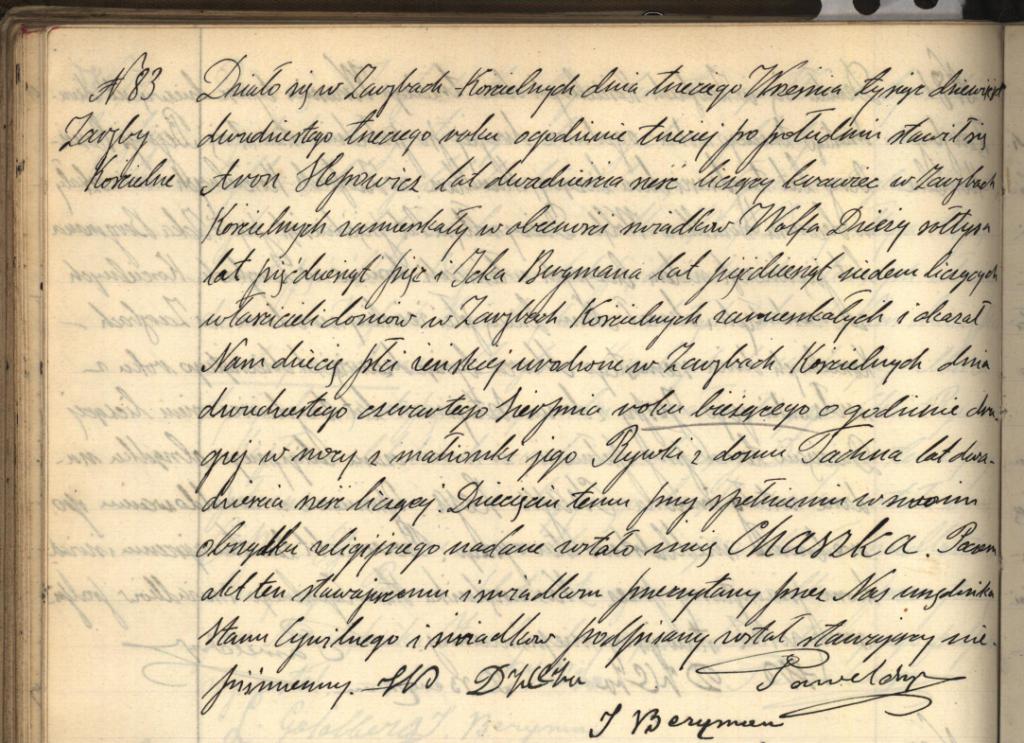 N 83
Zaręby
Kościelne
Działo się w Zarębach Kościelnych dnia trzeciego Września tysiąc dziewięćset
dwudziestego trzeciego roku o godzinie trzeciej po południu stawił się
Aron lat dwadzieścia sześć liczący krawiec w Zarębach
Kościelnych zamieszkały w obecności świadków Wolfa sołtysa
lat pięćdziesiąt pięć i Icka Bergmana lat pięćdziesiąt siedem liczących
właścicieli domów w Zarębach Kościelnych zamieszkałych i okazał
Nam dziecię płci żeńskiej urodzone w Zarębach Kościelnych dnia
dwudziestego czwartego Sierpnia roku bieżącego o godzinie dru-
giej w nocy z małżonki jego Rywki z domu lat dwa-
dzieścia sześć liczącej. Dziecięciu temu przy spełnieniu w swoim
obrządku religijnego nadane zostało imię Chaszka. Poczem
akt ten stawającemu i świadkom przeczytany przez Nas urzędnika
Stanu Cywilnego i świadków podpisany został stawający nie-
piśmienny.
J Bergman